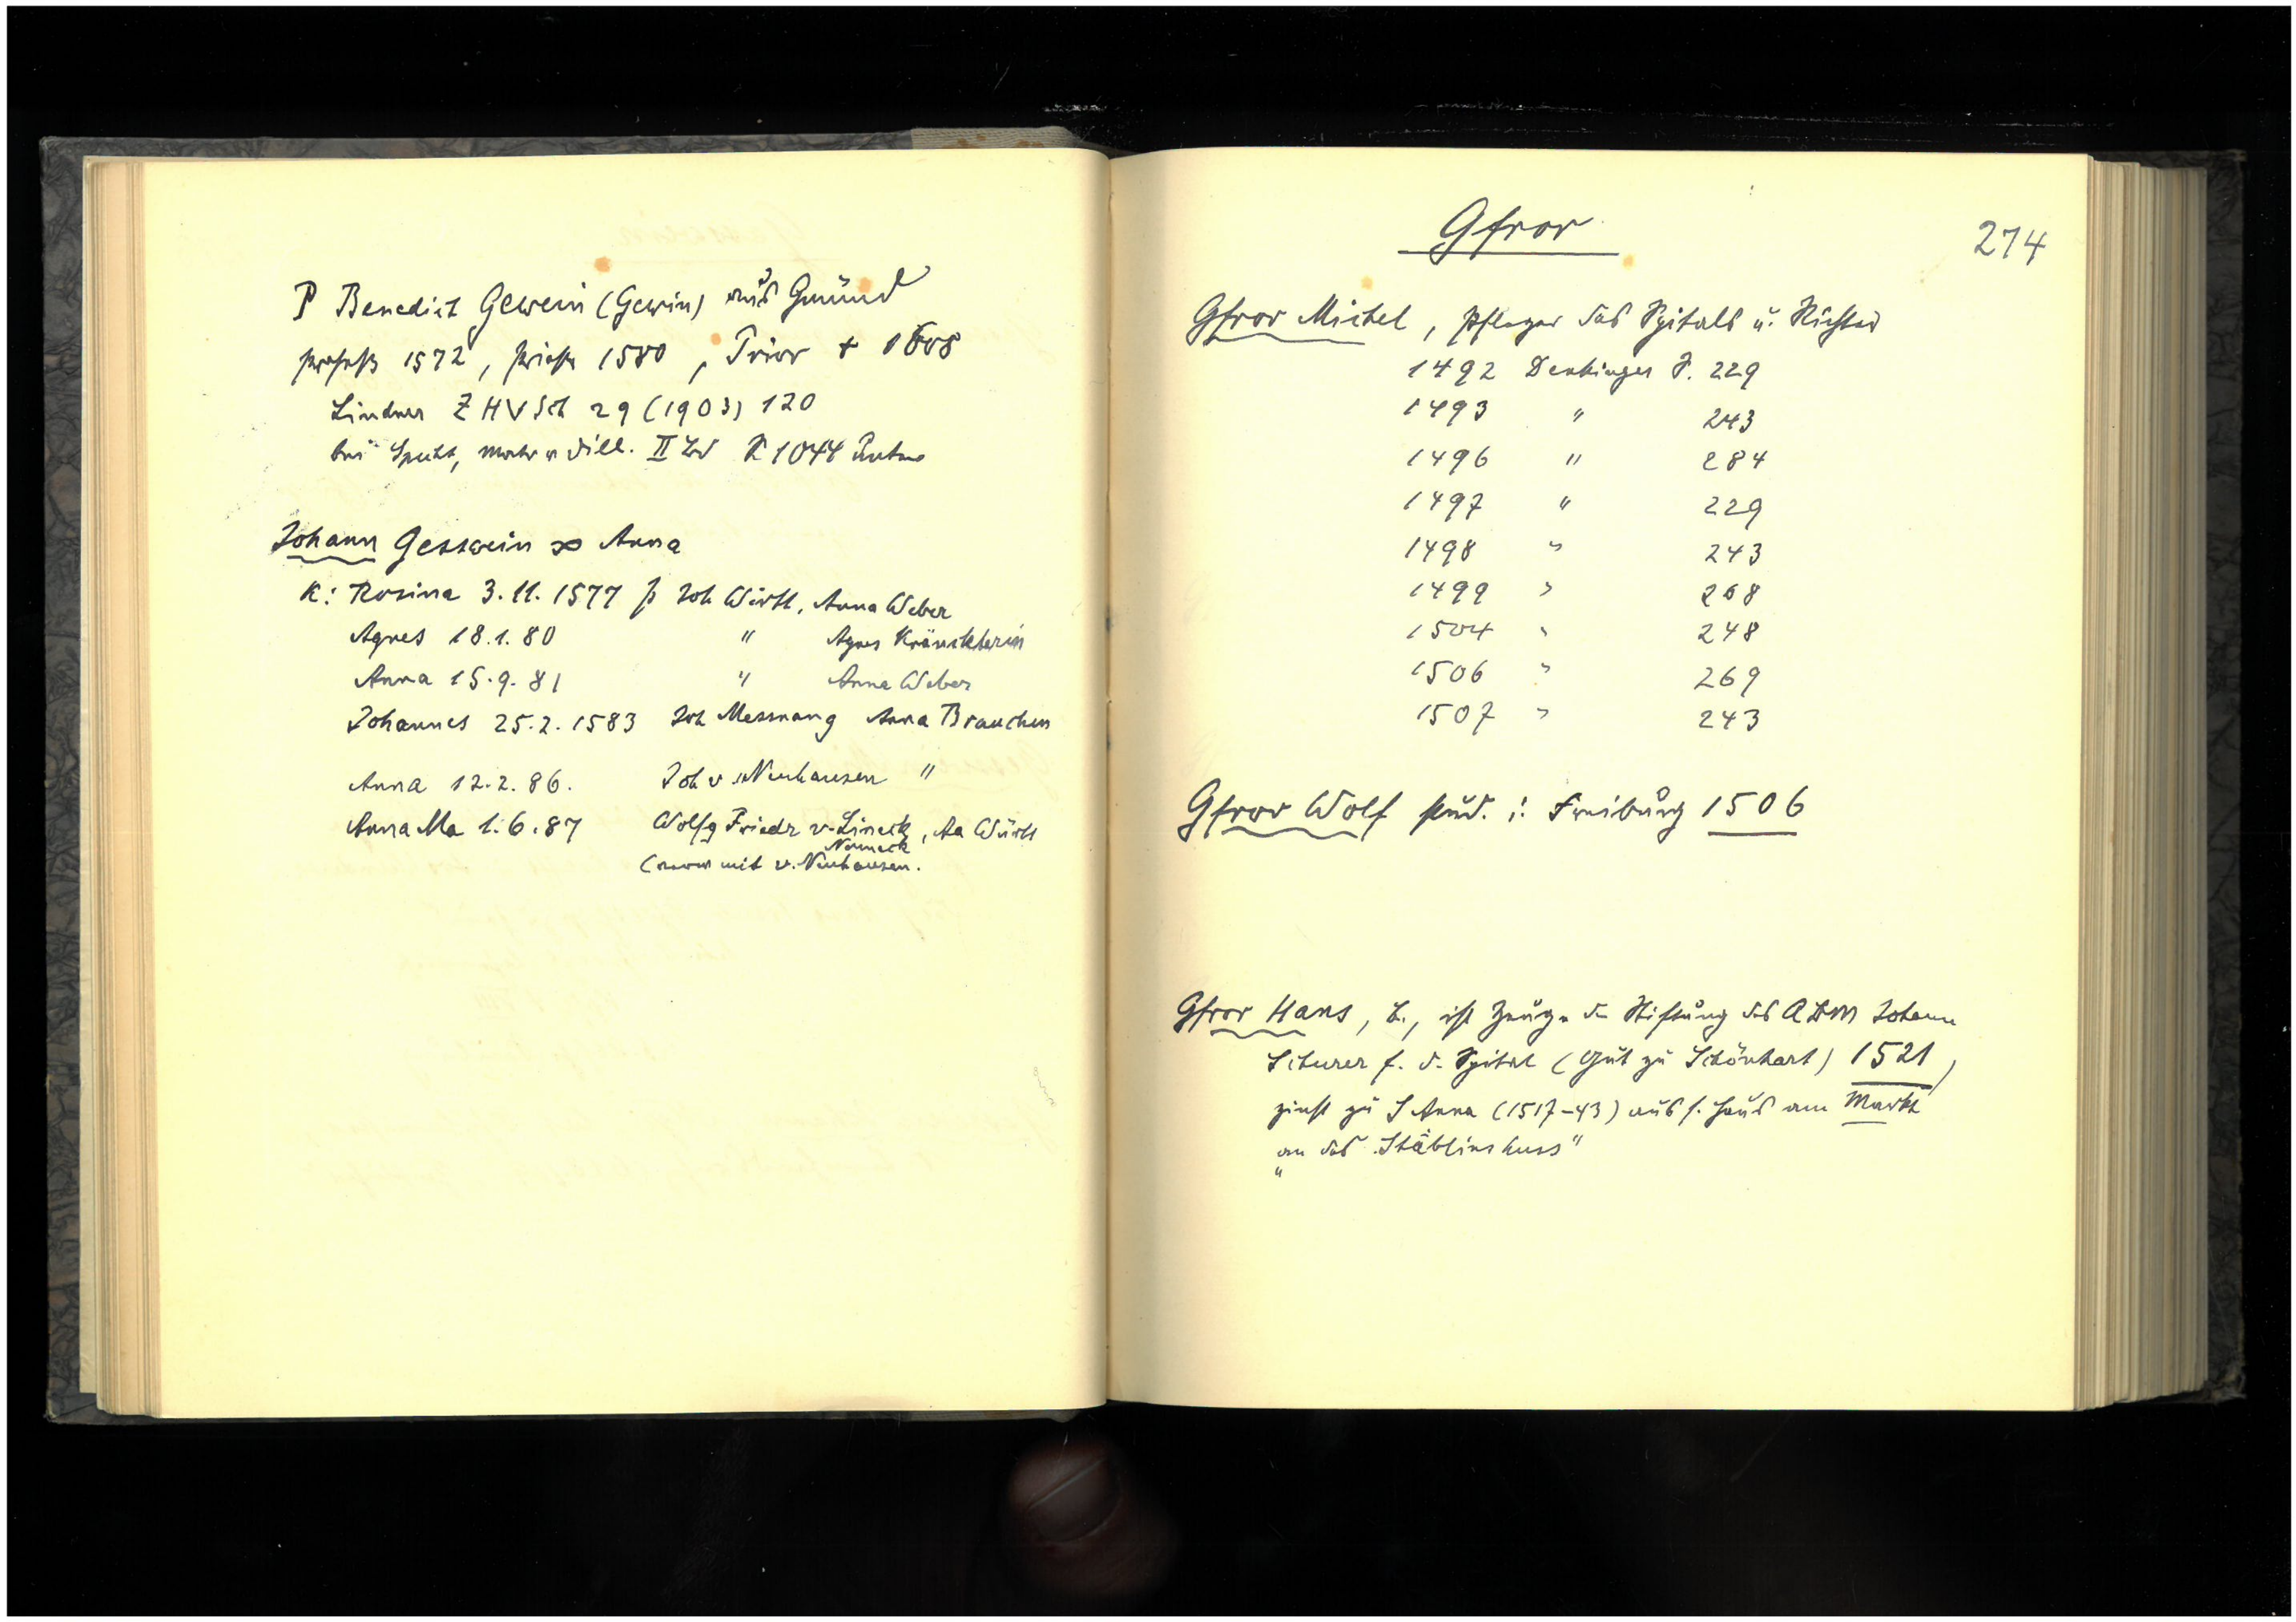 P Benedict Gewein (Gewin) aus Gmünd
profeß 1572, priester 1580, Prior + 1608
Lindner ZHVSch 29 (1903) 120
bei Specht, matr. dill. II Bd S 1044
Johann Gesswein ∞ Anna
K: Rosina 3.11.1577 p Joh Württ, Anna Weber
Agnes 18.1.80 " Agnes
Anna 15.9.81 " Anna Weber
Johannes 25.2.1583 Joh Messnang Anna Brauchen
Anna 12.2.86. Joh v. Neuhausen "
Anna Ma 1.6.87 Wolfg Friedr v. Lineck, Aa Württ
Neuneck
mit v. Neuhausen.
Gfror
274
Gfror Michel, Pfleger des Spitals u. Richter
1492 Denkinger S. 229
1493 " 243
1496 " 284
1497 " 229
1498 " 243
1499 " 268
1504 " 248
1506 " 269
1507 " 243
Gfror Wolf stud. i. Freiburg 1506
Gfror Hans, B., ist Zeuge der Stiftung des ADM Johann
Scturer f. d. Spital (Gut zu Schönhart) 1521,
zinst zu S Anna (1517-43) aus s. Haus am Markt
"an des Stäblins huss"